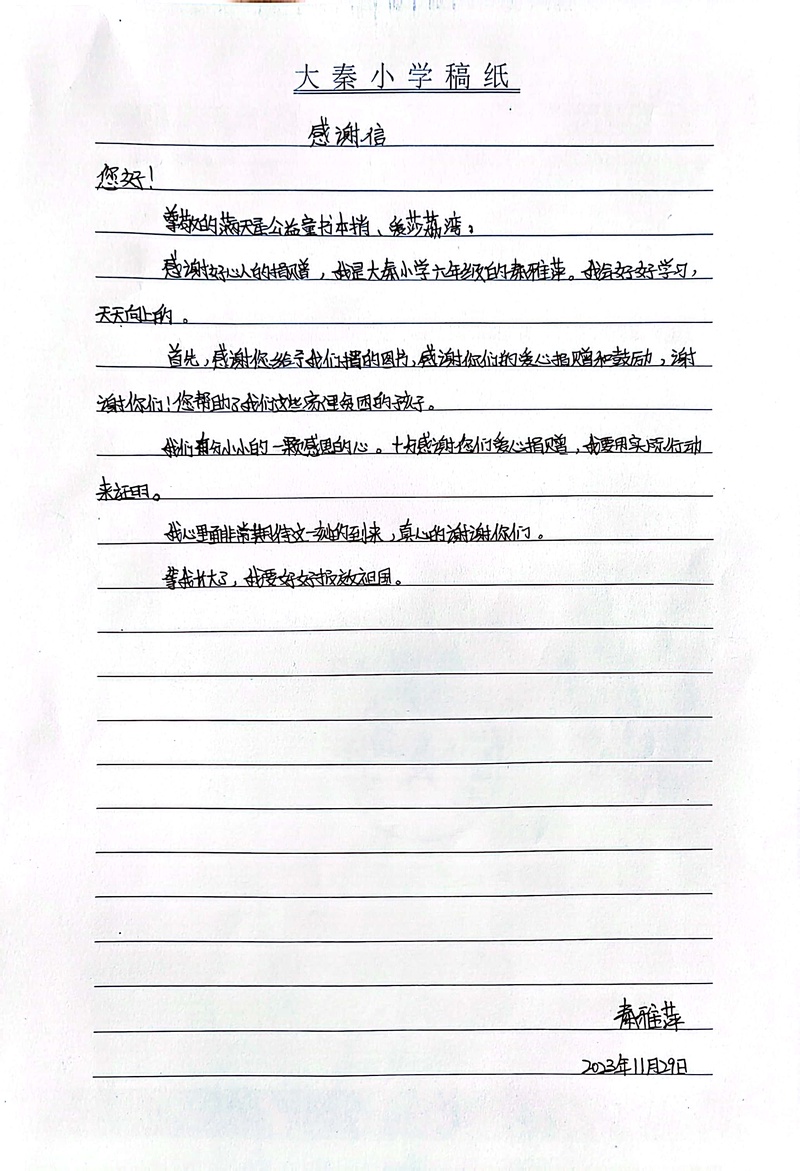 大秦小学稿纸
感谢信
您好！
尊敬的满天星公益童书本捎、爱莎荔湾：
感谢好心人的捐赠，我是大秦小学六年级的秦雅萍。我会好好学习，
天天向上的。
首先，感谢您给予我们捐的图书，感谢你们的爱心捐赠和鼓励，谢
谢你们！您帮助了我们这些家里贫困的孩子。
我们有分小小的一颗感恩的心。十分感谢您们爱心捐赠，我要用实际行动
来证明。
我心里面非常期待这一刻的到来，真心的谢谢你们。
等我长大了，我要好好报效祖国。
秦雅萍
2023年11月29日